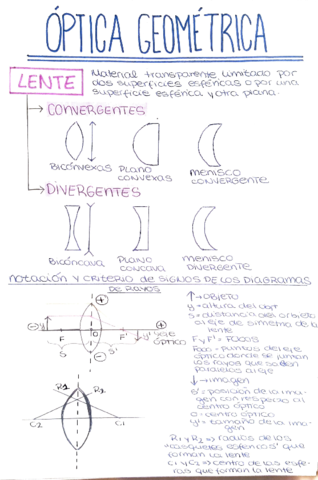 ÓPTICA GEOMÉTRICA
LENTE
Material transparente limitado por
dos superficies esféricas o por una
superficie esférica y otra plana.
CONVERGENTES
BICONVEXAS
PLANO
CONVEXAS
MENISCO
CONVERGENTE
DIVERGENTES
BICÓNCAVA
PLANO
CONCAVA
MENISCO
DIVERGENTE
NOTACIÓN Y CRITERIO DE SIGNOS DE LOS DIAGRAMAS
DE RAYOS
+
-
y
F
O
F'
y'
+
eje
óptico
S
S'
-
R2
R1
C2
C1
↑→ OBJETO
y = altura del
S = distancia del objeto
al eje de simetría de la
lente
F y F' = FOCOS
Foco = puntos del eje
óptico donde se juntan
los rayos que salen
paralelos al eje
↓→ imagen
S' = posición de la ima-
gen con respecto al
centro óptico
O = centro óptico
y' = tamaño de la ima-
gen
R1 y R2 ⇒ radios de los
que
forman la lente
C1 y C2 ⇒ centro de las esfe-
ras que forman la lente